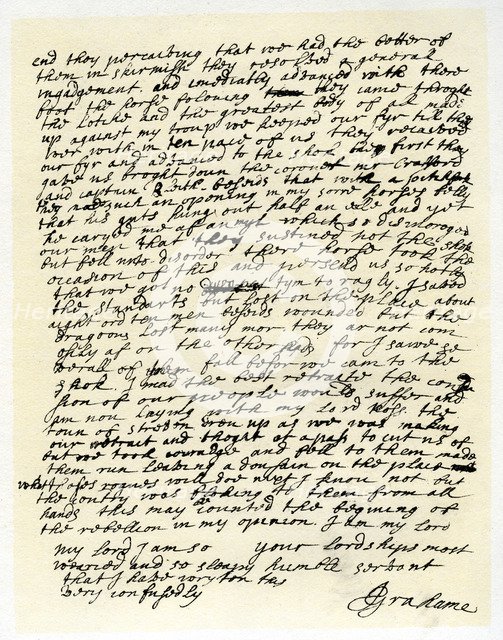 end they perceaving that we had the better of
them in skirmish they resolved a generall
ingagement and imediatly advanced with there
foot the horse folouing they came throght
the lotche and the greatest body of all made
up against my troup we keeped our fyr till they
wer with in ten pace of us they recaived
our fyr and advanced to the shok they first they
gave us broght doun the coronet mr Crafford
and captain bith besids that with a pitchfork
they mad such an openning in my sorre horses belly
that his guts hung out half an elle and yet
he caryed me af an myl which so discoroged
our men that they sustined not the shok
but fell into disorder there horse took the
occasion of this and persued us so hotly
that we got no tym to ragly I saved
the standarts but lost on the place about
aight ord ten men besids wounded but the
dragoons lost many mor they ar not com
esily af on the other side for I sawe se
verall of them fall befor we cam to the
shok I mad the best retraite the con
sion of our people would suffer and
am nou laying with my lord Ross the
toun of streven dreu up as we was making
our retrait and thoght of a pass to cut us of
but we took couradge and fell to them made
them run leaving a dousain on the place
what thes rogues will doe next I know not but
the contry was floking to them from all
hands this may be counted the begining of
the rebellion in my opinion I am my lord
My lord I am so your lordships most
wearied and so sleapy humble servant
that I have wryton this
very confusedly JGrahame